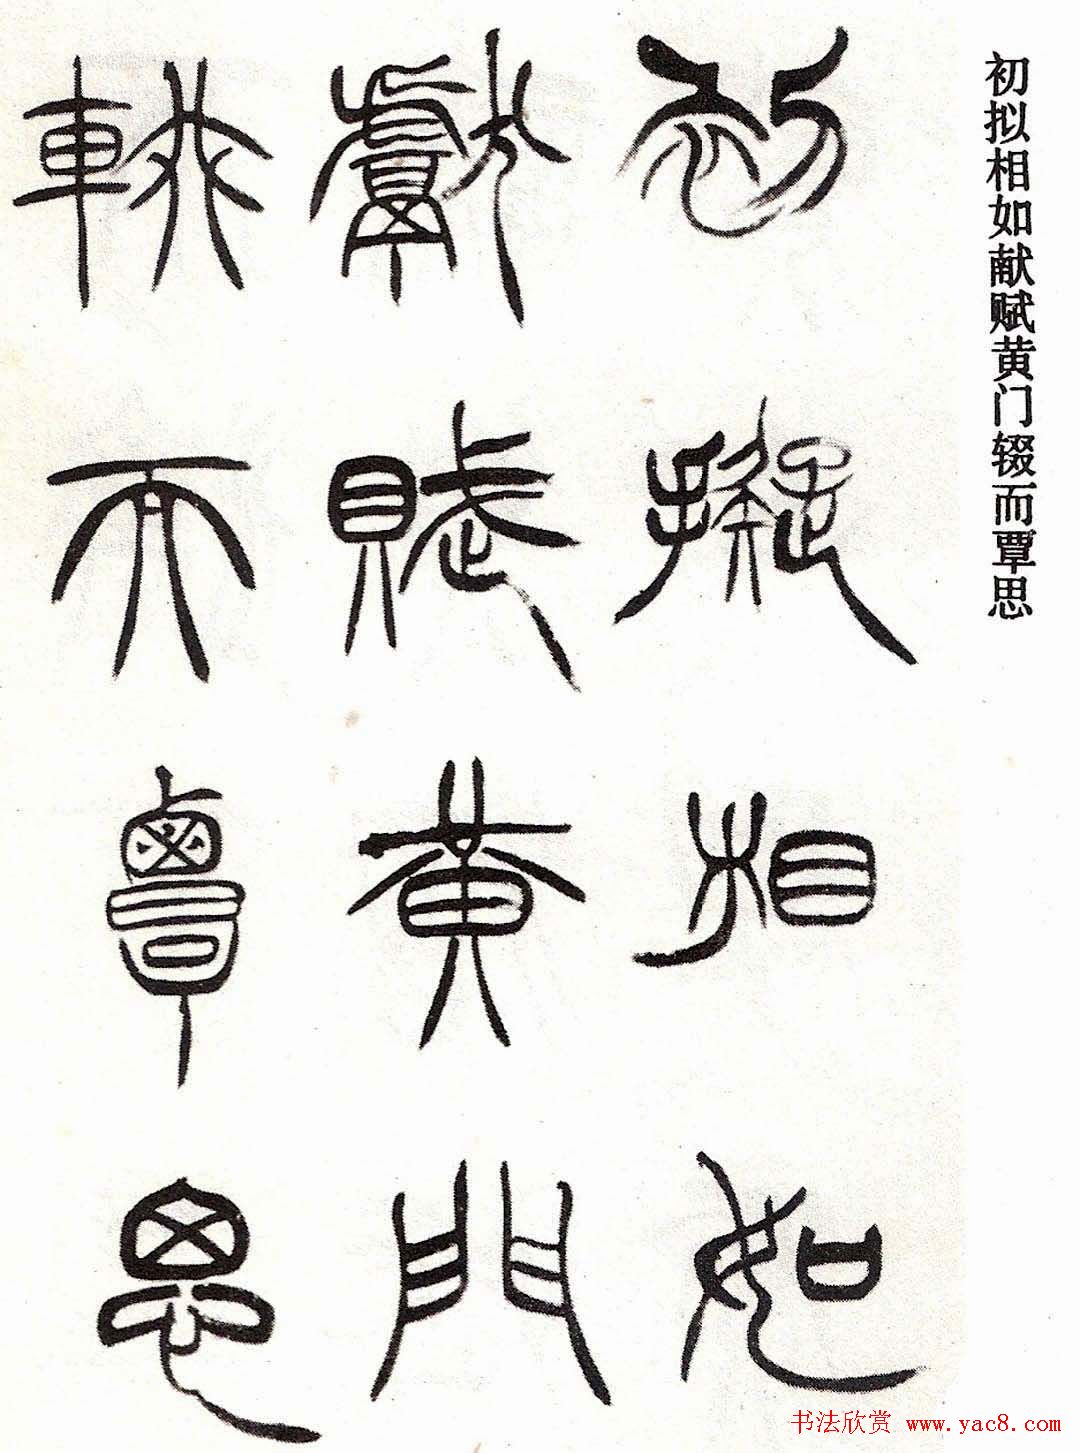 初拟相如献赋黄门辍而覃思
初擬相如
獻賦黃門
輟而覃思
书法欣赏 www.yac8.com